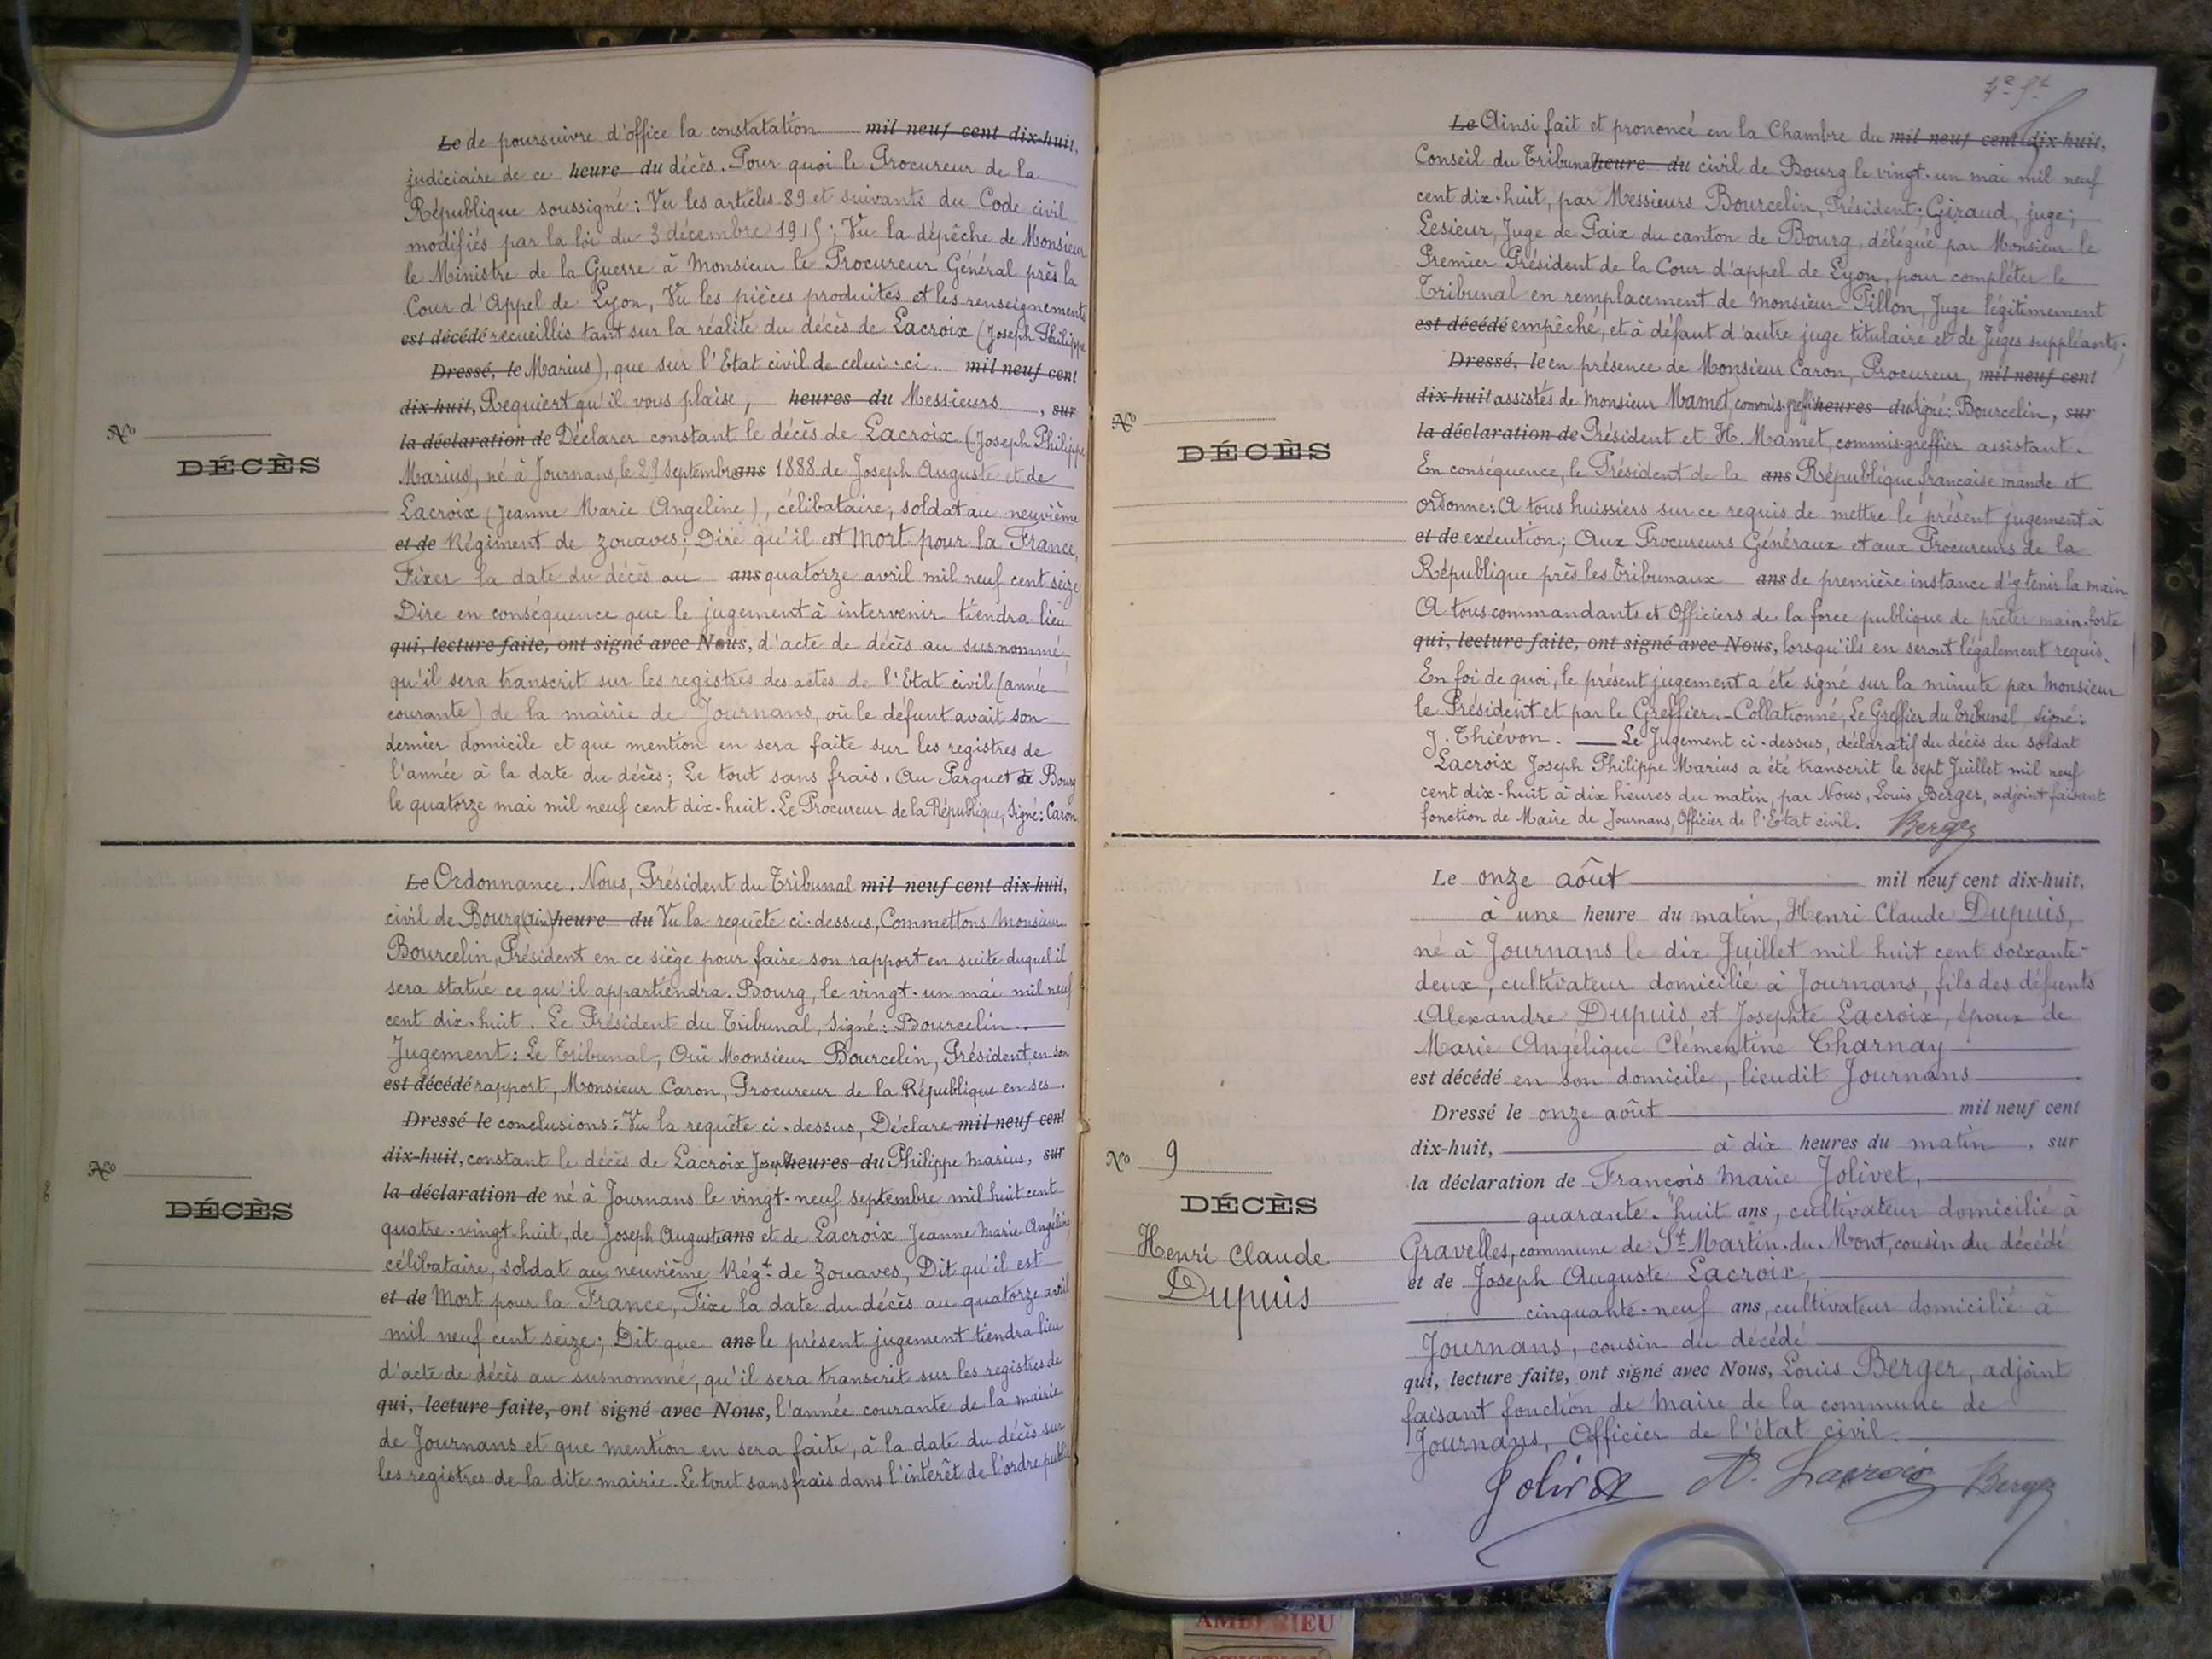 Le de poursuivre d'office la constatation mil neuf cent dix-huit,
judiciaire de ce heure du décès. Pour quoi le Procureur de la
République soussigné: Vu les articles 89 et suivants du Code civil
modifiés par la loi du 3 décembre 1915; Vu la dépêche de Monsieur
le Ministre de la Guerre à Monsieur le Procureur Général près la
Cour d'Appel de Lyon, Vu les pièces produites et les renseignements
est décédé recueillis tant sur la réalité du décès de Lacroix (Joseph Philippe
Dressé, le Marius), que sur l'Etat civil de celui-ci. mil neuf cent
dix-huit, Requiert qu'il vous plaise, heures du Messieurs, sur
la déclaration de Déclarer constant le décès de Lacroix (Joseph Philippe
Marius), né à Journans, le 29 Septembre ans 1888 de Joseph Auguste et de
Lacroix (Jeanne Marie Angeline), célibataire, soldat au neuvième
et de Régiment de Zouaves; Dire qu'il est Mort pour la France,
Fixer la date du décès au ans quatorze avril mil neuf cent seize
Dire en conséquence que le jugement à intervenir tiendra lieu
qui, lecture faite, ont signé avec Nous, d'acte de décès au susnommé
qu'il sera transcrit sur les registres des actes de l'Etat civil (année
courante) de la mairie de Journans, où le défunt avait son
dernier domicile et que mention en sera faite sur les registres de
l'année à la date du décès; Le tout sans frais. Au Parquet de Bourg
le quatorze mai mil neuf cent dix-huit. Le Procureur de la République, Signé: Caron
No
DÉCÈS
Le Ordonnance. Nous, Président du Tribunal mil neuf cent dix-huit,
civil de Bourg (Ain) heure du Vu la requête ci-dessus, Commettons Monsieur
Bourcelin, Président en ce siège pour faire son rapport en suite duquel il
sera statué ce qu'il appartiendra. Bourg, le vingt-un mai mil neuf
cent dix-huit. Le Président du Tribunal, Signé: Bourcelin.
Jugement: Le Tribunal, Ouï Monsieur Bourcelin, Président, en son
est décédé rapport, Monsieur Caron, Procureur de la République en ses
Dressé le conclusions: Vu la requête ci-dessus, Déclare mil neuf cent
dix-huit, constant le décès de Lacroix Joseph heures du Philippe Marius, sur
la déclaration de né à Journans le vingt-neuf septembre mil huit cent
quatre-vingt-huit, de Joseph Auguste ans et de Lacroix Jeanne Marie Angéline
célibataire, soldat au neuvième Régt de Zouaves, Dit qu'il est
et de Mort pour la France, Fixe la date du décès au quatorze avril
mil neuf cent seize; Dit que ans le présent jugement tiendra lieu
d'acte de décès au susnommé, qu'il sera transcrit sur les registres de
qui, lecture faite, ont signé avec Nous, l'année courante de la mairie
de Journans et que mention en sera faite, à la date du décès sur
les registres de la dite mairie. Le tout sans frais dans l'intérêt de l'ordre public
No
DÉCÈS
Le Ainsi fait et prononcé en la Chambre du mil neuf cent dix-huit,
Conseil du Tribunal heure du civil de Bourg le vingt-un mai mil neuf
cent dix-huit, par Messieurs Bourcelin, Président; Giraud, juge;
Lesieur, Juge de Paix du canton de Bourg, délégué par Monsieur le
Premier Président de la Cour d'appel de Lyon, pour compléter le
Tribunal en remplacement de Monsieur Pillon, Juge légitimement
est décédé empêché, et à défaut d'autre juge titulaire et de Juges suppléants;
Dressé, le en présence de Monsieur Caron, Procureur, mil neuf cent
dix-huit assistés de Monsieur Mamet, commis-greffi heures du Signé: Bourcelin, sur
la déclaration de Président et H. Mamet, commis-greffier assistant.
En conséquence, le Président de la ans République française mande et
ordonne: A tous huissiers sur ce requis de mettre le présent jugement à
et de exécution; Aux Procureurs Généraux et aux Procureurs de la
République près les Tribunaux ans de première instance d'y tenir la main
A tous commandants et Officiers de la force publique de prêter main-forte
qui, lecture faite, ont signé avec Nous, lorsqu'ils en seront légalement requis.
En foi de quoi, le présent jugement a été signé sur la minute par Monsieur
le Président et par le Greffier. - Collationné, Le Greffier du Tribunal, signé:
J. Thiévon. — Le Jugement ci-dessus, déclaratif du décès du soldat
Lacroix Joseph Philippe Marius a été transcrit le sept Juillet mil neuf
cent dix-huit à dix heures du matin, par Nous, Louis Berger, adjoint faisant
fonction de Maire de Journans, Officier de l'Etat civil. Berger
No
DÉCÈS
Le onze août mil neuf cent dix-huit,
à une heure du matin, Henri Claude Dupuis,
né à Journans le dix Juillet mil huit cent soixante-
deux, cultivateur domicilié à Journans, fils des défunts
Alexandre Dupuis et Josephte Lacroix, époux de
Marie Angélique Clémentine Charnay
est décédé en son domicile, lieudit Journans.
Dressé le onze août mil neuf cent
dix-huit, à dix heures du matin, sur
la déclaration de François Marie Jolivet,
quarante-huit ans, cultivateur domicilié à
Gravelles, commune de St Martin-du-Mont, cousin du décédé
et de Joseph Auguste Lacroix,
cinquante-neuf ans, cultivateur domicilié à
Journans, cousin du décédé
qui, lecture faite, ont signé avec Nous, Louis Berger, adjoint
faisant fonction de Maire de la commune de
Journans, Officier de l'état civil.
Jolivet A. Lacroix Berger
No 9
DÉCÈS
Henri Claude
Dupuis
AMBERIEU